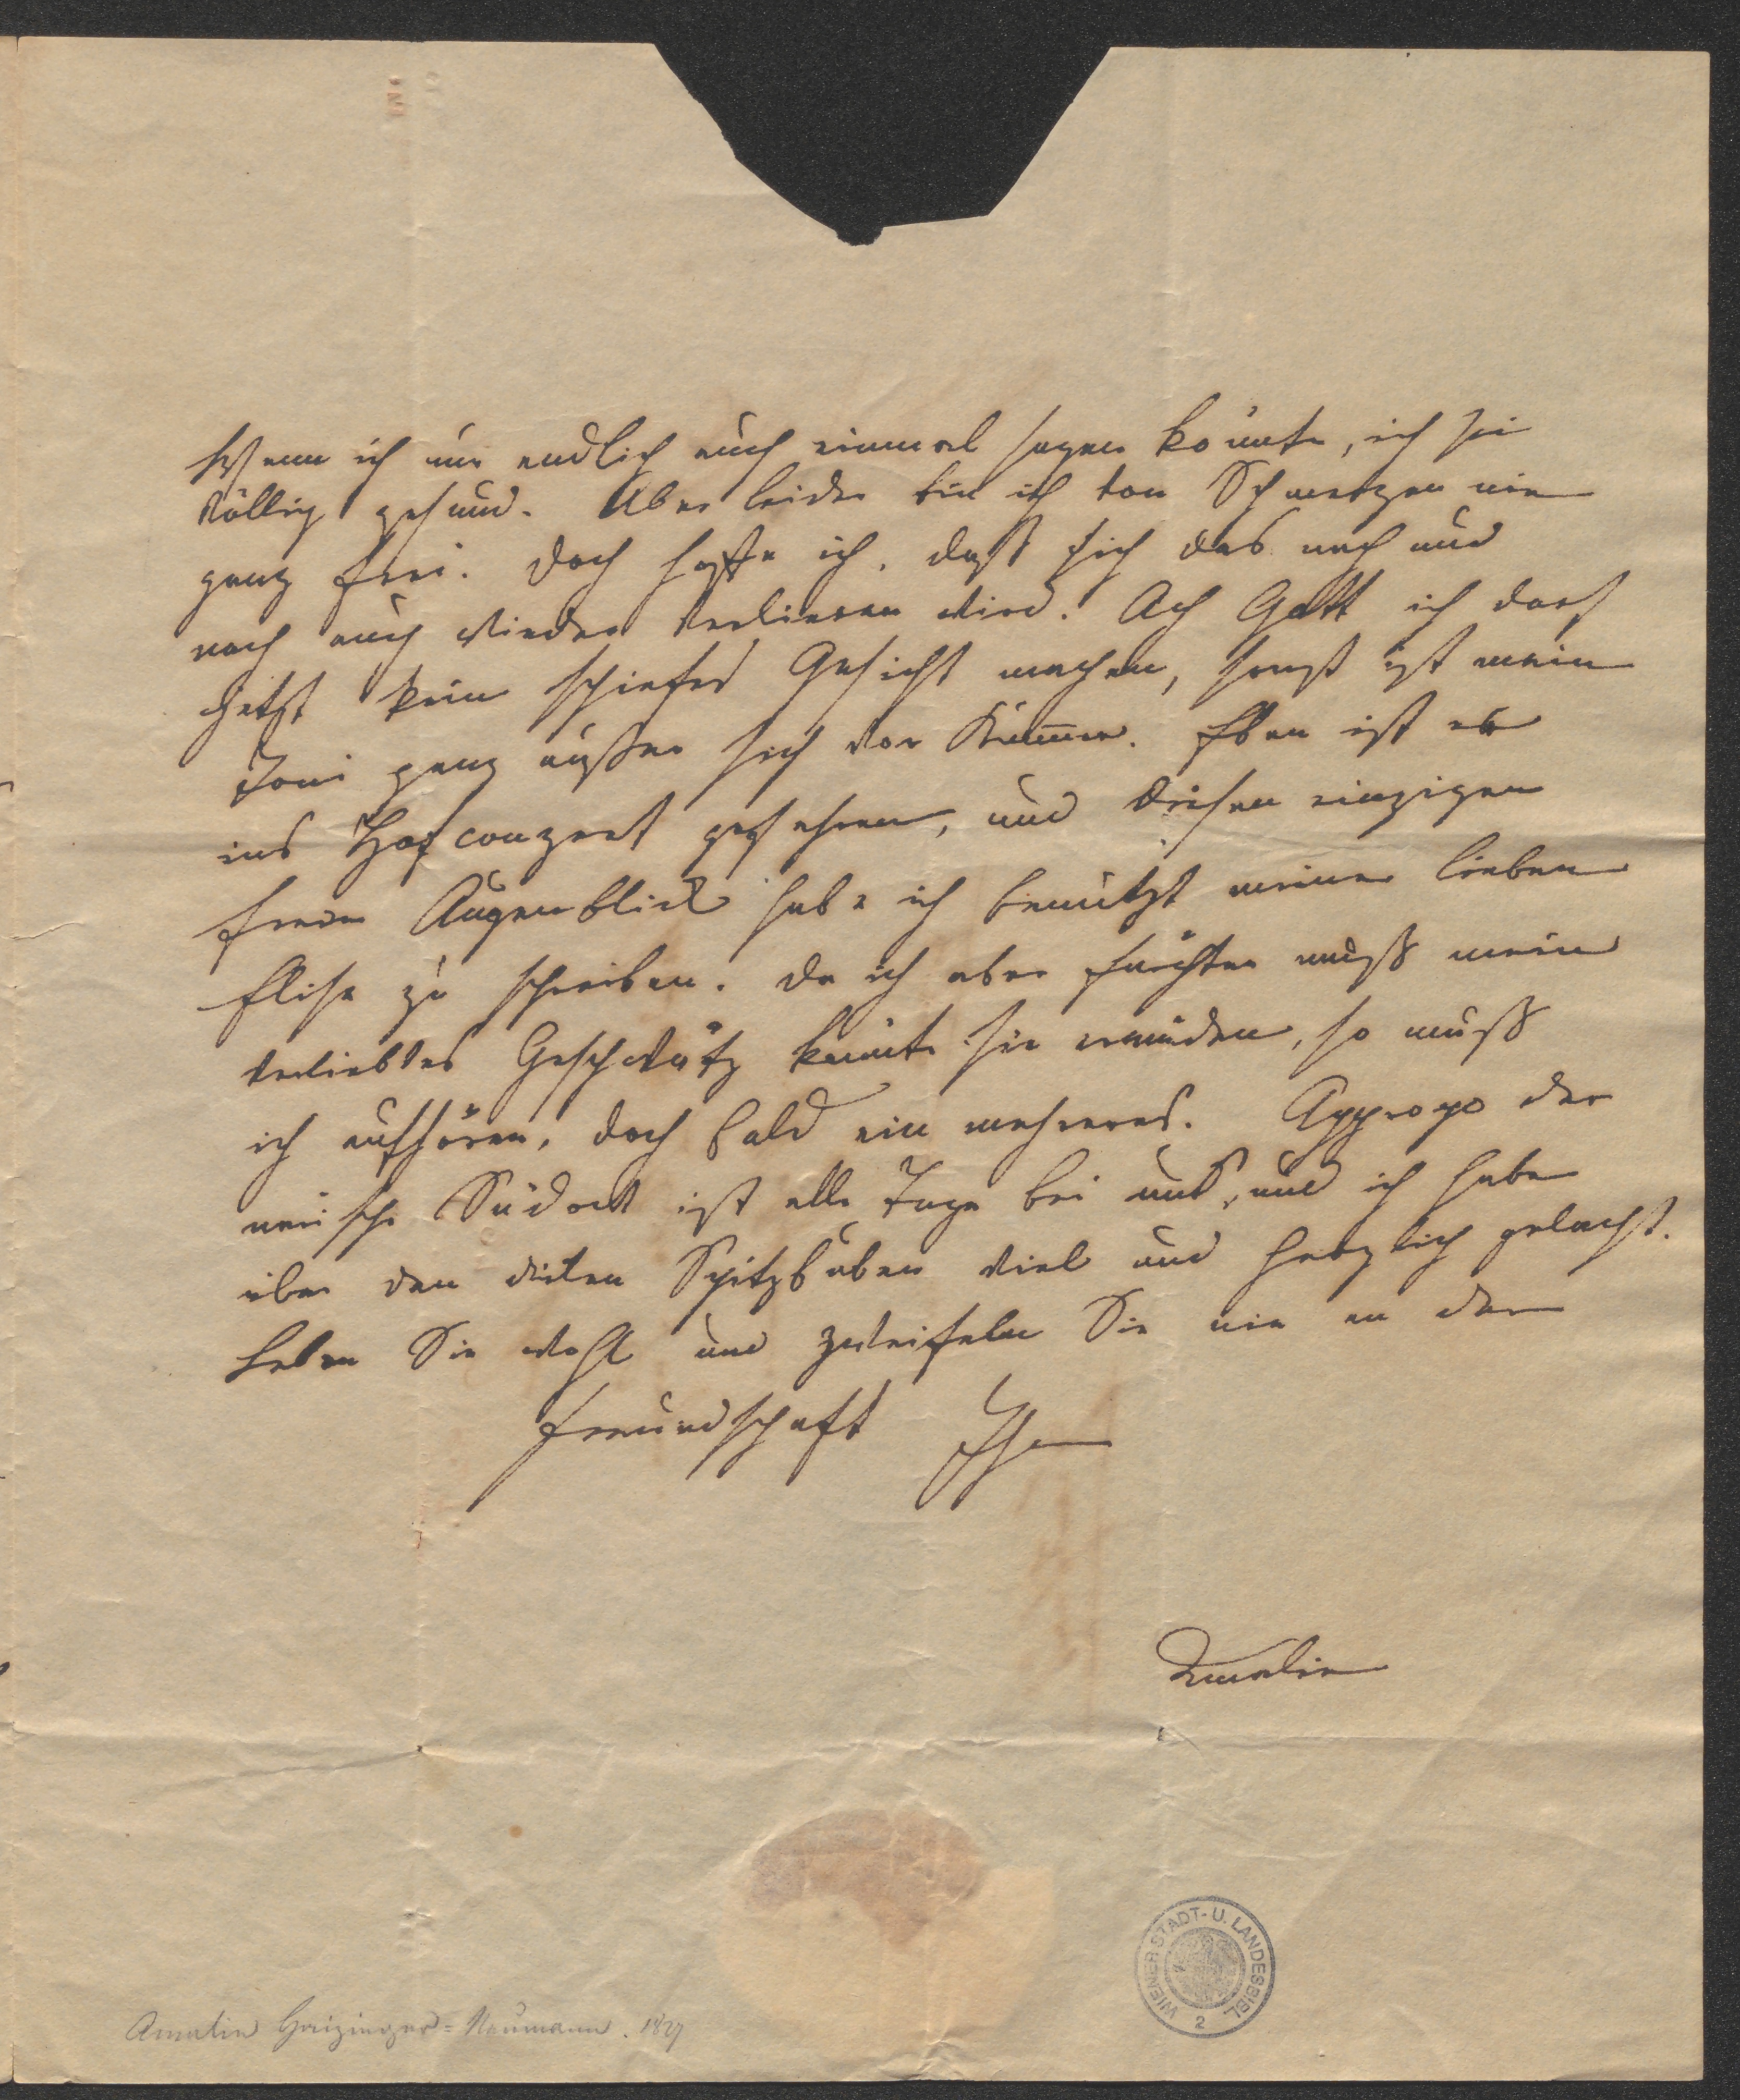 Wenn ich nur endlich auch einmal sagen könnte, ich sei
völlig gesund. Aber leider bin ich von Schmerzen nie
ganz frei. Doch hoffe ich, daß sich das nach und
nach auch wieder verlieren wird. Ach Gott ich darf
jetzt kein schiefes Gesicht machen, sonst ist mein
Toni ganz außer sich vor Kummer. Eben ist er
ins Hofconzert gefahren, und diesen einzigen
freien Augenblick habe ich benützt meiner lieben
Elise zu schreiben. Da ich aber fürchten muß mein
verliebtes Geschwätz könnte Sie ermüden, so muß
ich aufhören, doch bald ein mehreres. Appropo der
närische ist alle Tage bei uns, und ich habe
über den Spitzbuben viel und herzlich gelacht.
Leben Sie wohl und zweifeln Sie nie an der
Freundschaft Ihrer
Amalie
Amalie Haizinger=Neumann. 1827
WIENER STADT- U. LANDESBIBL.
2